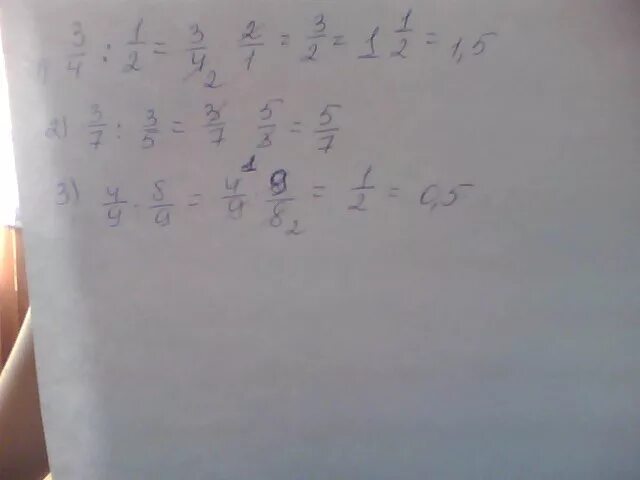 1) 3/4 : 1/2 = 3/4 2 2/1 = 3/2 = 1 1/2 = 1,5
2) 3/7 : 3/5 = 3/7 5/3 = 5/7
3) 4/9 · 8/9 = 4/9 1 9/8 2 = 1/2 = 0,5